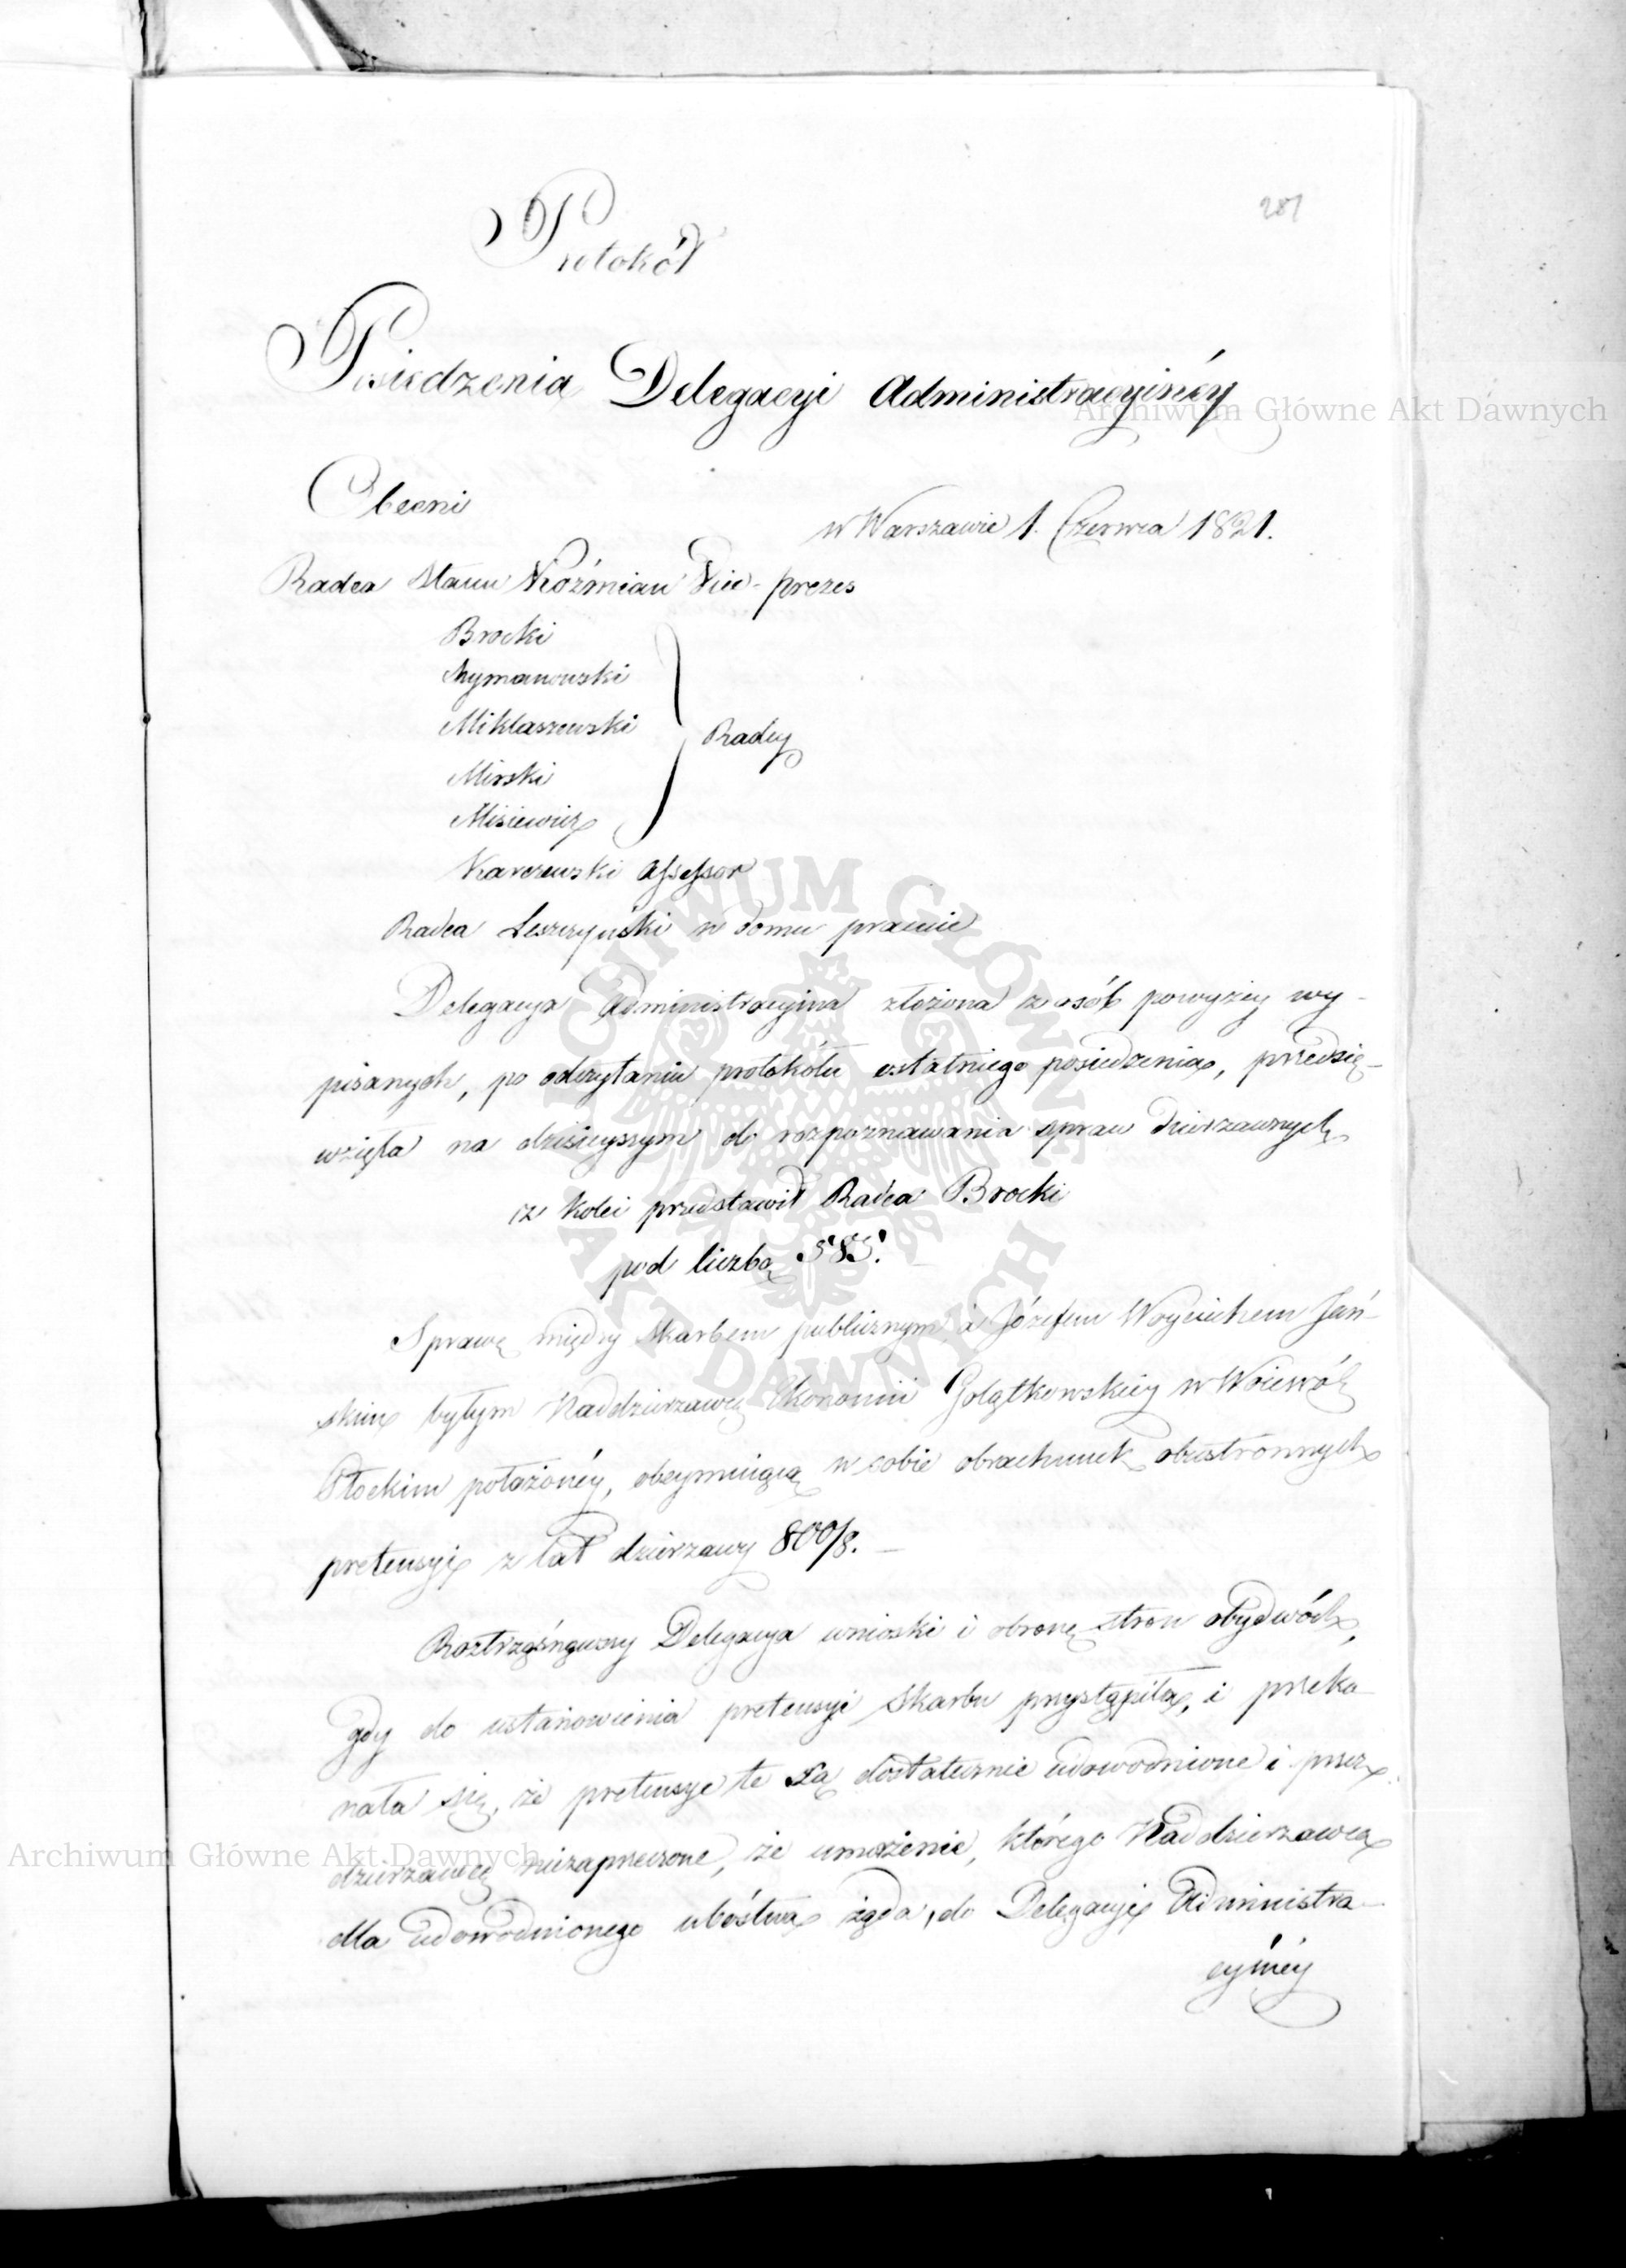 287
Protokół
Posiedzenia Delegacyi Administracyinéy
Obecni
w Warszawie 1. Czerwca 1821.
Radca Stanu Koźmian Vice-prezes
Brocki
Szymanowski
Miklaszewski
Radcy
Mirski
Misiewicz
Karczewski Assessor
Radca Leszczyński w domu pracuie
Delegacya Administracyina złożona z osób powyżey wy-
pisanych, po odczytaniu protokółu ostatniego posiedzenia, przedsię-
wzięła na dzisieyszym do rozpoznawania spraw dzierzawnych
z kolei przedstawił Radca Brocki
pod liczbą 585.
Sprawę między Skarbem publicznym a Józefem Woyciechem Jań-
skim byłym Naddzierzawcą Ekonomii Gołątkowskiéy w Woiewód:
Płockim położonéy, obeymuiącą w sobie obrachunek obustronnych
pretensyi z lat dzierzawy 800/8. —
Roztrząsnąwszy Delegacya wnioski i obronę stron obydwóch,
gdy do ustanowienia pretensyi Skarbu przystąpiła, i przeko-
nała się, że pretensye te są dostatecznie udowodnione i przez
dzierzawcę niezaprzeczone, że umorzenie, którego Naddzierzawca
dla udowodnionego ubóstwa żąda, do Delegacyi Administra-
cyinéy
Archiwum Główne Akt Dawnych
Archiwum Główne Akt Dawnych
ARCHIWUM GŁÓWNE AKT DAWNYCH